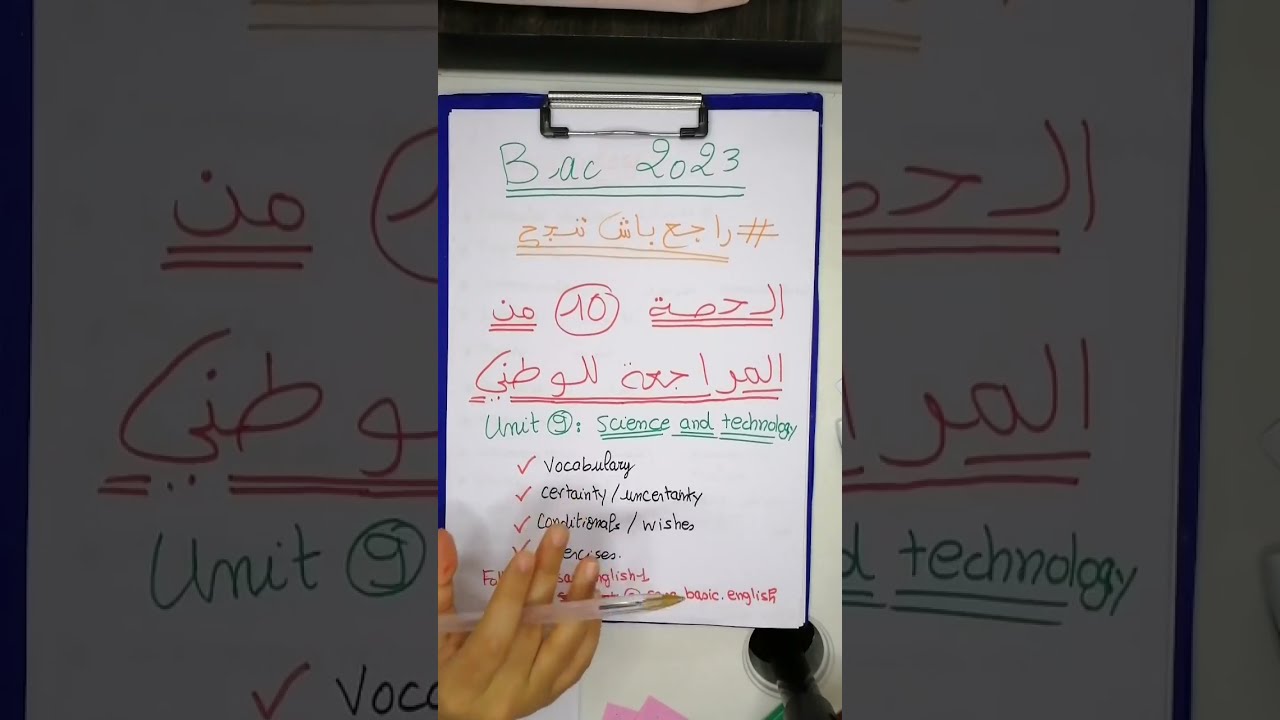 Bac 2023
#راجع باش تنجح
الحصة 10 من
المراجعة للوطني
Unit 9: Science and technology
✓ Vocabulary
✓ certainty/uncertainty
✓ Conditionals / wishes
✓
english-1
basic.english